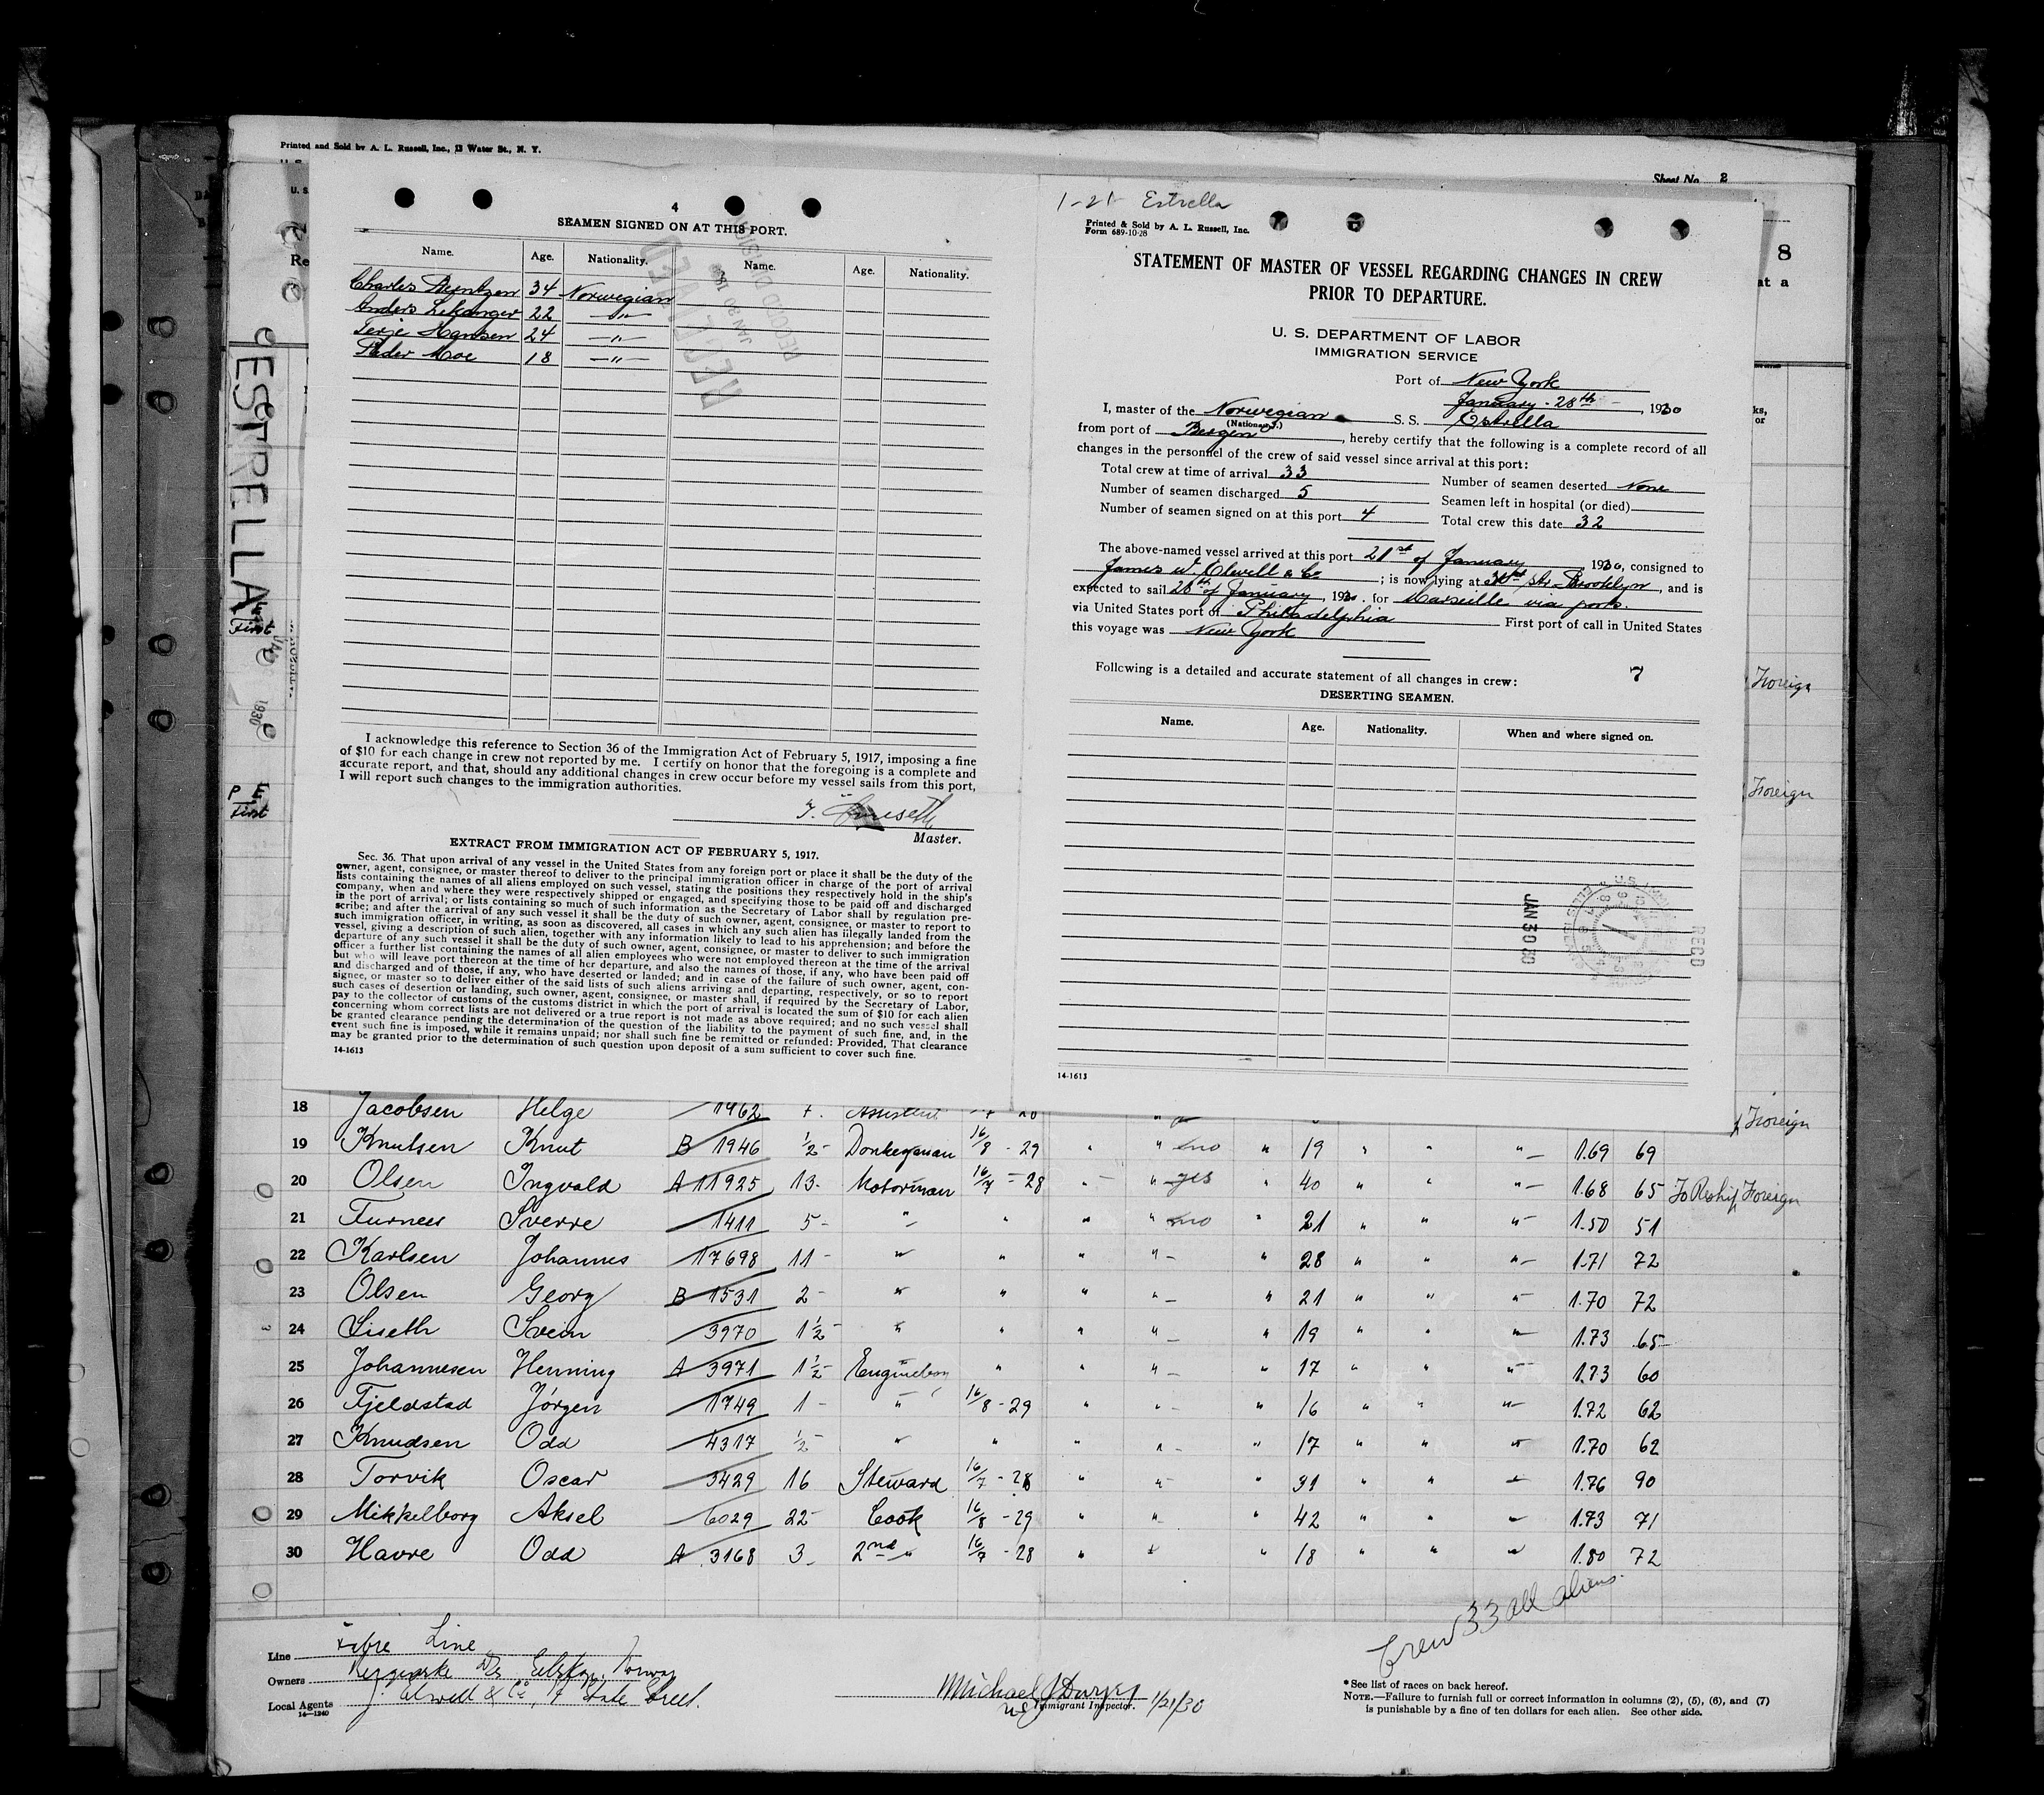 Printed and Sold by A. L. Russell, Inc., 13 Water St., N. Y.
Sheet No. 2
4
SEAMEN SIGNED ON AT THIS PORT.
Name. Age. Nationality. Name. Age. Nationality.
Charles 34 Norwegian
Anders 22 —"—
Terje Hansen 24 —"—
Peder Moe 18 —"—
I acknowledge this reference to Section 36 of the Immigration Act of February 5, 1917, imposing a fine
of $10 for each change in crew not reported by me. I certify on honor that the foregoing is a complete and
accurate report, and that, should any additional changes in crew occur before my vessel sails from this port,
I will report such changes to the immigration authorities.
Master.
EXTRACT FROM IMMIGRATION ACT OF FEBRUARY 5, 1917.
Sec. 36. That upon arrival of any vessel in the United States from any foreign port or place it shall be the duty of the
owner, agent, consignee, or master thereof to deliver to the principal immigration officer in charge of the port of arrival
lists containing the names of all aliens employed on such vessel, stating the positions they respectively hold in the ship's
company, when and where they were respectively shipped or engaged, and specifying those to be paid off and discharged
in the port of arrival; or lists containing so much of such information as the Secretary of Labor shall by regulation pre-
scribe; and after the arrival of any such vessel it shall be the duty of such owner, agent, consignee, or master to report to
such immigration officer, in writing, as soon as discovered, all cases in which any such alien has illegally landed from the
vessel, giving a description of such alien, together with any information likely to lead to his apprehension; and before the
departure of any such vessel it shall be the duty of such owner, agent, consignee, or master to deliver to such immigration
officer a further list containing the names of all alien employees who were not employed thereon at the time of the arrival
but who will leave port thereon at the time of her departure, and also the names of those, if any, who have been paid off
and discharged and of those, if any, who have deserted or landed; and in case of the failure of such owner, agent, con-
signee, or master so to deliver either of the said lists of such aliens arriving and departing, respectively, or so to report
such cases of desertion or landing, such owner, agent, consignee, or master shall, if required by the Secretary of Labor,
pay to the collector of customs of the customs district in which the port of arrival is located the sum of $10 for each alien
concerning whom correct lists are not delivered or a true report is not made as above required; and no such vessel shall
be granted clearance pending the determination of the question of the liability to the payment of such fine, and, in the
event such fine is imposed, while it remains unpaid; nor shall such fine be remitted or refunded: Provided, That clearance
may be granted prior to the determination of such question upon deposit of a sum sufficient to cover such fine.
14-1613
1-21 Estrella
Printed & Sold by A. L. Russell, Inc.
Form 689-10-28
STATEMENT OF MASTER OF VESSEL REGARDING CHANGES IN CREW
PRIOR TO DEPARTURE.
U. S. DEPARTMENT OF LABOR
IMMIGRATION SERVICE
Port of New York
January - 28th, 1930
I, master of the Norwegian S. S. Estrella
(Nationality.)
from port of Bergen, hereby certify that the following is a complete record of all
changes in the personnel of the crew of said vessel since arrival at this port:
Total crew at time of arrival 33 Number of seamen deserted None
Number of seamen discharged 5 Seamen left in hospital (or died)
Number of seamen signed on at this port 4 Total crew this date 32
The above-named vessel arrived at this port 21st of January, 1930, consigned to
James W. Elwell & Co; is now lying at Str. Brooklyn, and is
expected to sail 28th of January, 1930. for Marseille via ports.
via United States port of Philadelphia First port of call in United States
this voyage was New York
7
Following is a detailed and accurate statement of all changes in crew:
DESERTING SEAMEN.
Name. Age. Nationality. When and where signed on.
JAN 30 30
RECD
14-1613
ESTRELLA
First
1930
P E
First
8
at a
ks,
or
Foreign
Foreign
18 Jacobsen Helge 1962 7. Assistent Foreign
19 Knutsen Knut B 1946 1/2- Donkeyman 16/8 - 29 " " no " 19 " " " 1.69 69
20 Olsen Ingvald A 11925 13- Motorman 16/7 - 28 " " yes " 40 " " " 1.68 65 To Reship Foreign
21 Furnees Sverre 1411 5- " " " " no " 21 " " " 1.50 51
22 Karlsen Johannes 17698 11- " " " " 28 " " " 1.71 72
23 Olsen Georg B 1531 2- " " " " " 21 " " " 1.70 72
24 Liseth Svein 3970 1 1/2- " " " " " 19 " " " 1.73 65
25 Johannesen Henning A 3971 1 1/2- Engineboy " " " " 17 " " " 1.73 60
26 Fjeldstad Jørgen 1749 1- " 16/8 - 29 " " " 16 " " " 1.72 62
27 Knudsen Odd 4317 1/2- " " " " " 17 " " " 1.70 62
28 Torvik Oscar 3429 16 Steward 16/7 - 28 " " " 31 " " " 1.76 90
29 Mikkelborg Aksel 6029 22- Cook 16/8 - 29 " " " 42 " " " 1.73 71
30 Havre Odd A 3168 3- 2nd " 16/7 - 28 " " " 18 " " " 1.80 72
Crew 33 all aliens.
Line Fabre Line
Owners Bergenske Norway
Local Agents J. Elwell & Co, 17 State Street.
14-1240
Michael J Dwyer 1/21/30
Immigrant Inspector.
* See list of races on back hereof.
NOTE.—Failure to furnish full or correct information in columns (2), (5), (6), and (7)
is punishable by a fine of ten dollars for each alien. See other side.